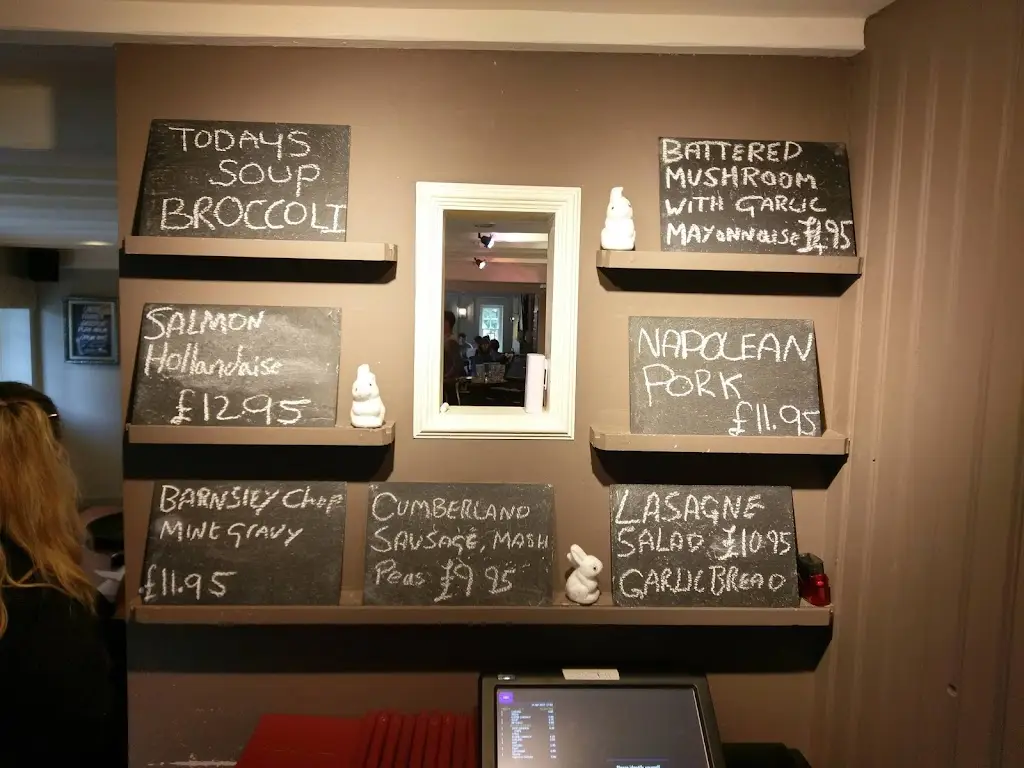 TODAYS
SOUP
BROCCOLI
BATTERED
MUSHROOM
WITH GARLIC
MAYONNAISE £4.95
SALMON
Hollandaise
£12.95
NAPOLEAN
PORK
£11.95
BARNSLEY CHOP
MINT GRAVY
£11.95
CUMBERLAND
SAUSAGE, MASH
Peas £9.95
LASAGNE
SALAD £10.95
GARLIC BREAD